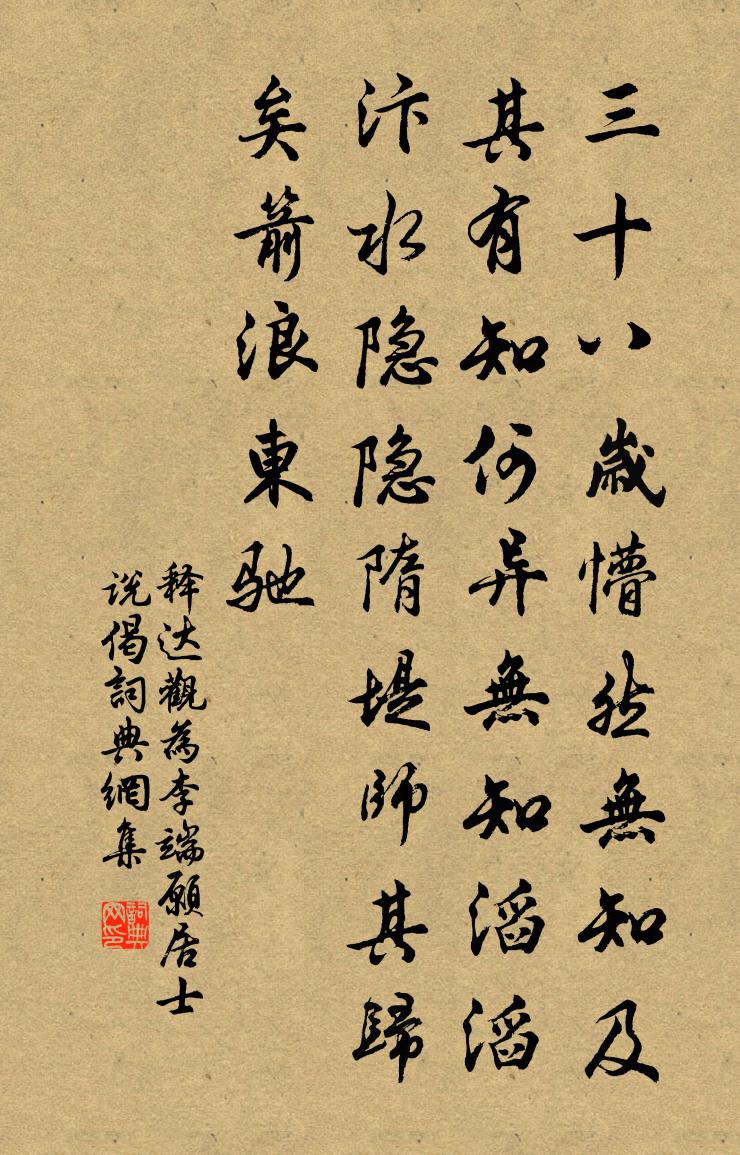 三十八歲懵然無知及
其有知何异無知滔滔
汴水隐隐隋堤師其歸
矣箭浪東馳
释达觀為李端願居士
说偈詞典網集
詞典
网印